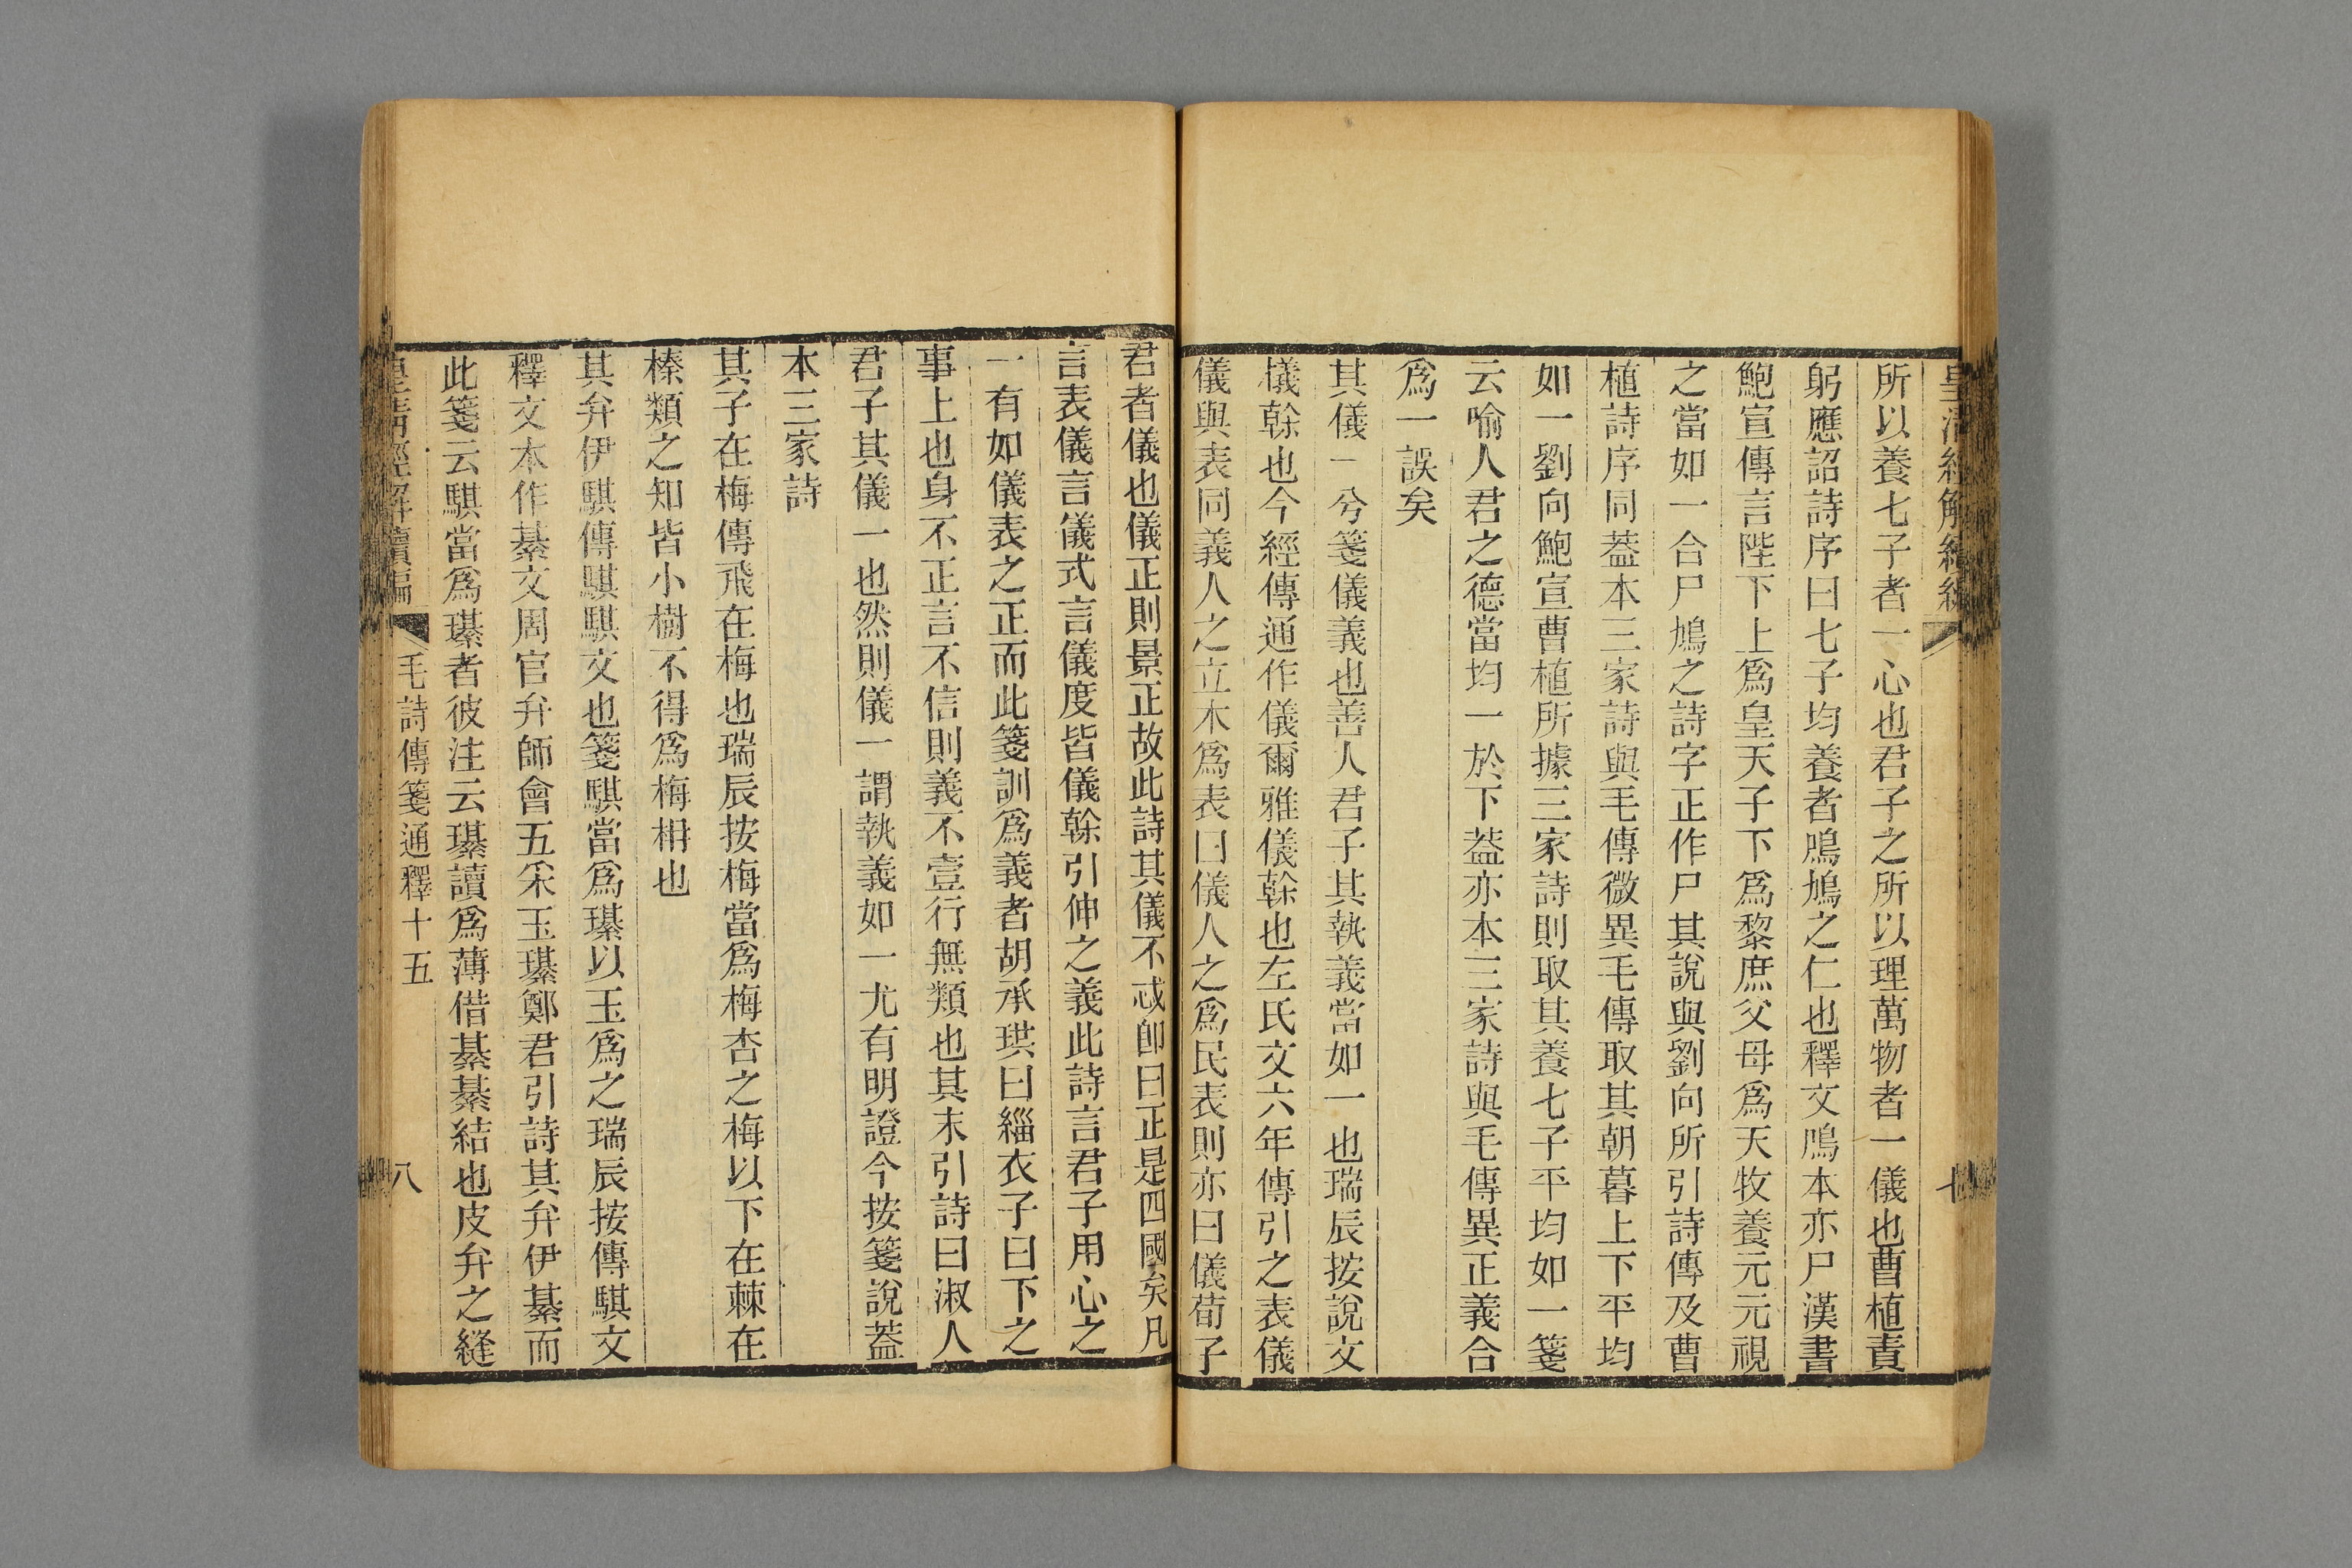 皇清經解續編
所以養七子者一心也君子之所以理萬物者一儀也曹植責
躬應詔詩序曰七子均養者鳲鳩之仁也釋文鳲本亦尸漢書
鮑宣傳言陛下上爲皇天子下爲黎庶父母爲天牧養元元視
之當如一合尸鳩之詩字正作尸其說與劉向所引詩傳及曹
植詩序同葢本三家詩與毛傳微異毛傳取其朝暮上下平均
如一劉向鮑宣曹植所據三家詩則取其養七子平均如一箋
云喻人君之德當均一於下葢亦本三家詩與毛傳異正義合
爲一誤矣
其儀一兮箋儀義也善人君子其執義當如一也瑞辰按說文
檥榦也今經傳通作儀爾雅儀榦也左氏文六年傳引之表儀
儀與表同義人之立木爲表曰儀人之爲民表則亦曰儀荀子
君者儀也儀正則景正故此詩其儀不忒卽曰正是四國矣凡
言表儀言儀式言儀度皆儀榦引伸之義此詩言君子用心之
一有如儀表之正而此箋訓爲義者胡承珙曰緇衣子曰下之
事上也身不正言不信則義不壹行無類也其末引詩曰淑人
君子其儀一也然則儀一謂執義如一尤有明證今按箋說葢
本三家詩
其子在梅傳飛在梅也瑞辰按梅當爲梅杏之梅以下在棘在
榛類之知皆小樹不得爲梅枏也
其弁伊騏傳騏騏文也箋騏當爲璂以玉爲之瑞辰按傳騏文
釋文本作綦文周官弁師會五采玉璂鄭君引詩其弁伊綦而
此箋云騏當爲璂者彼注云璂讀爲薄借綦綦結也皮弁之縫
皇清經解續編
毛詩傳箋通釋十五
八